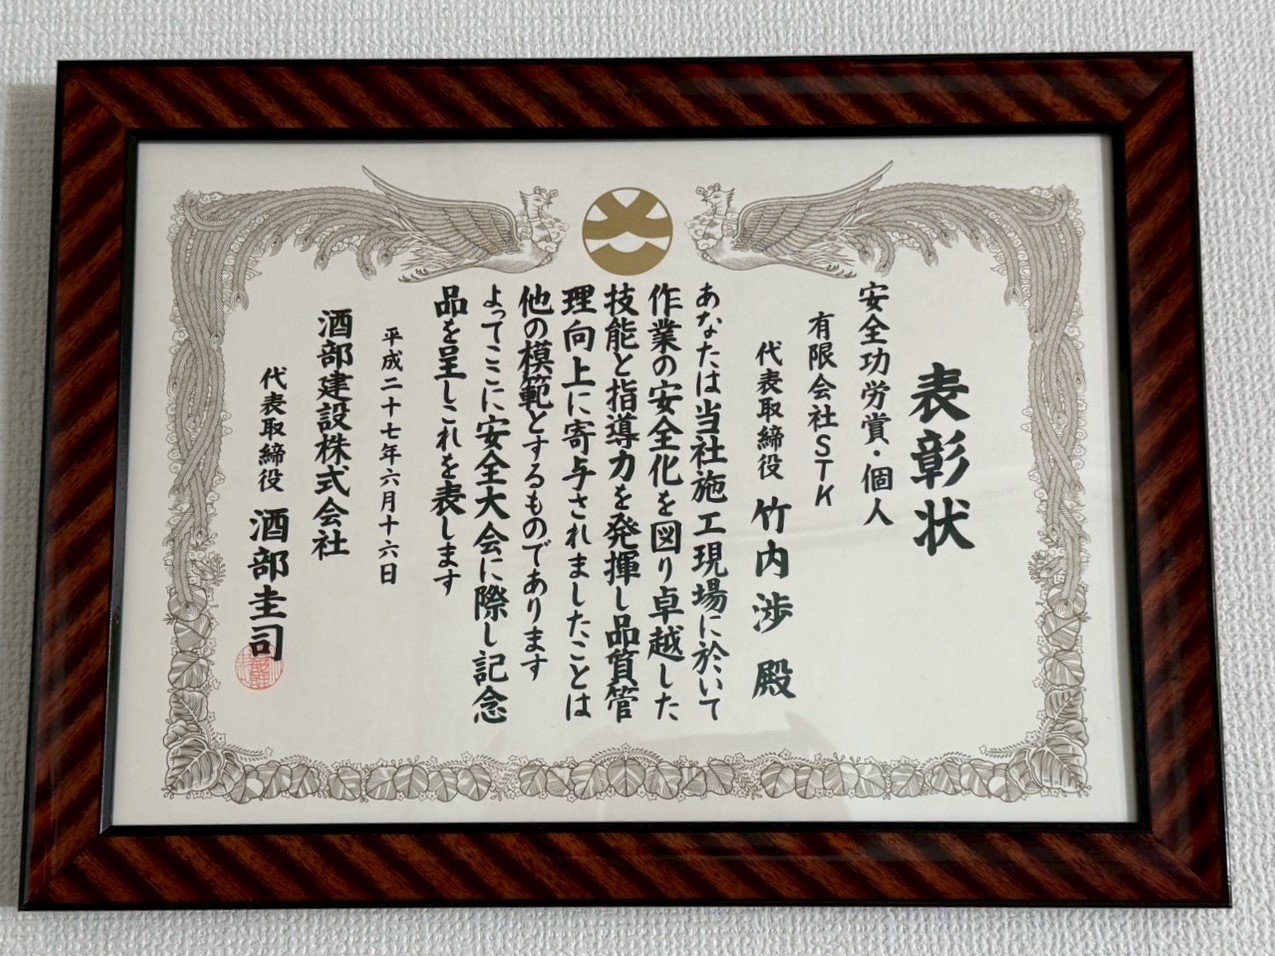 表彰状
安全功労賞・個人
有限会社STK
代表取締役 竹内渉 殿
あなたは当社施工現場に於いて
作業の安全化を図り卓越した
技能と指導力を発揮し品質管
理向上に寄与されましたことは
他の模範とするものであります
よってここに安全大会に際し記念
品を呈しこれを表します
平成二十七年六月十六日
酒部建設株式会社
代表取締役 酒部圭司